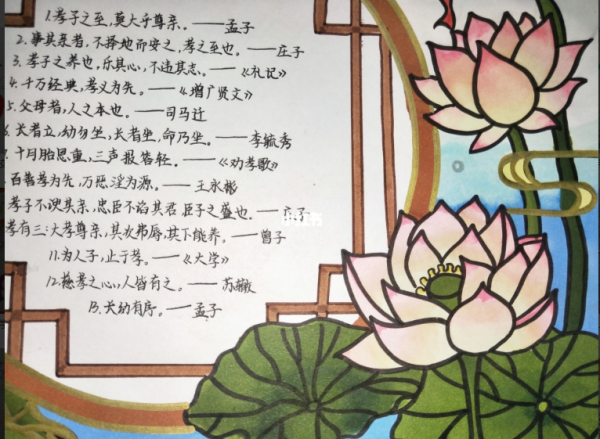 1.孝子之至,莫大乎尊亲。——孟子
2.事其亲者,不择地而安之,孝之至也。——庄子
3.孝子之养也,乐其心,不违其志。——《礼记》
4.千万经典,孝义为先。——《增广贤文》
5.父母者,人之本也。——司马迁
长者立,幼勿坐,长者坐,命乃坐。——李毓秀
7.十月胎恩重,三声报答轻。——《劝孝歌》
百善孝为先,万恶淫为源。——王永彬
孝子不谀其亲,忠臣不谄其君,臣子之盛也。——庄子
孝有三:大孝尊亲,其次弗辱,其下能养。——曾子
11.为人子,止于孝。——《大学》
12.慈孝之心,人皆有之。——苏辙
13.长幼有序。——孟子
小红书